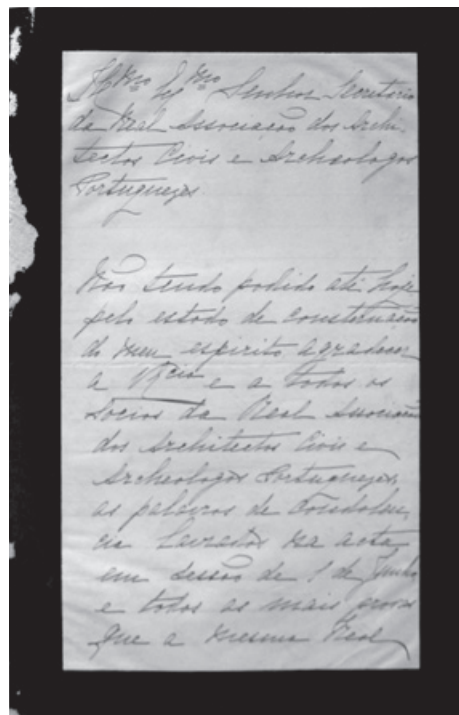 Illmo Exmo Senhor Secretario
da Real Associação dos Archi-
tectos Civis e Archeologos
Portuguezes
Não tendo podido até hoje
pelo estado de consternação
do meu espirito agradecer
a V Excia e a todos os
socios da Real Associação
dos Architectos Civis e
Archeologos Portuguezes,
as palavras de condolen-
cia lavradas na acta
em sessão de 1 de Junho
e todas as mais provas
que a mesma Real